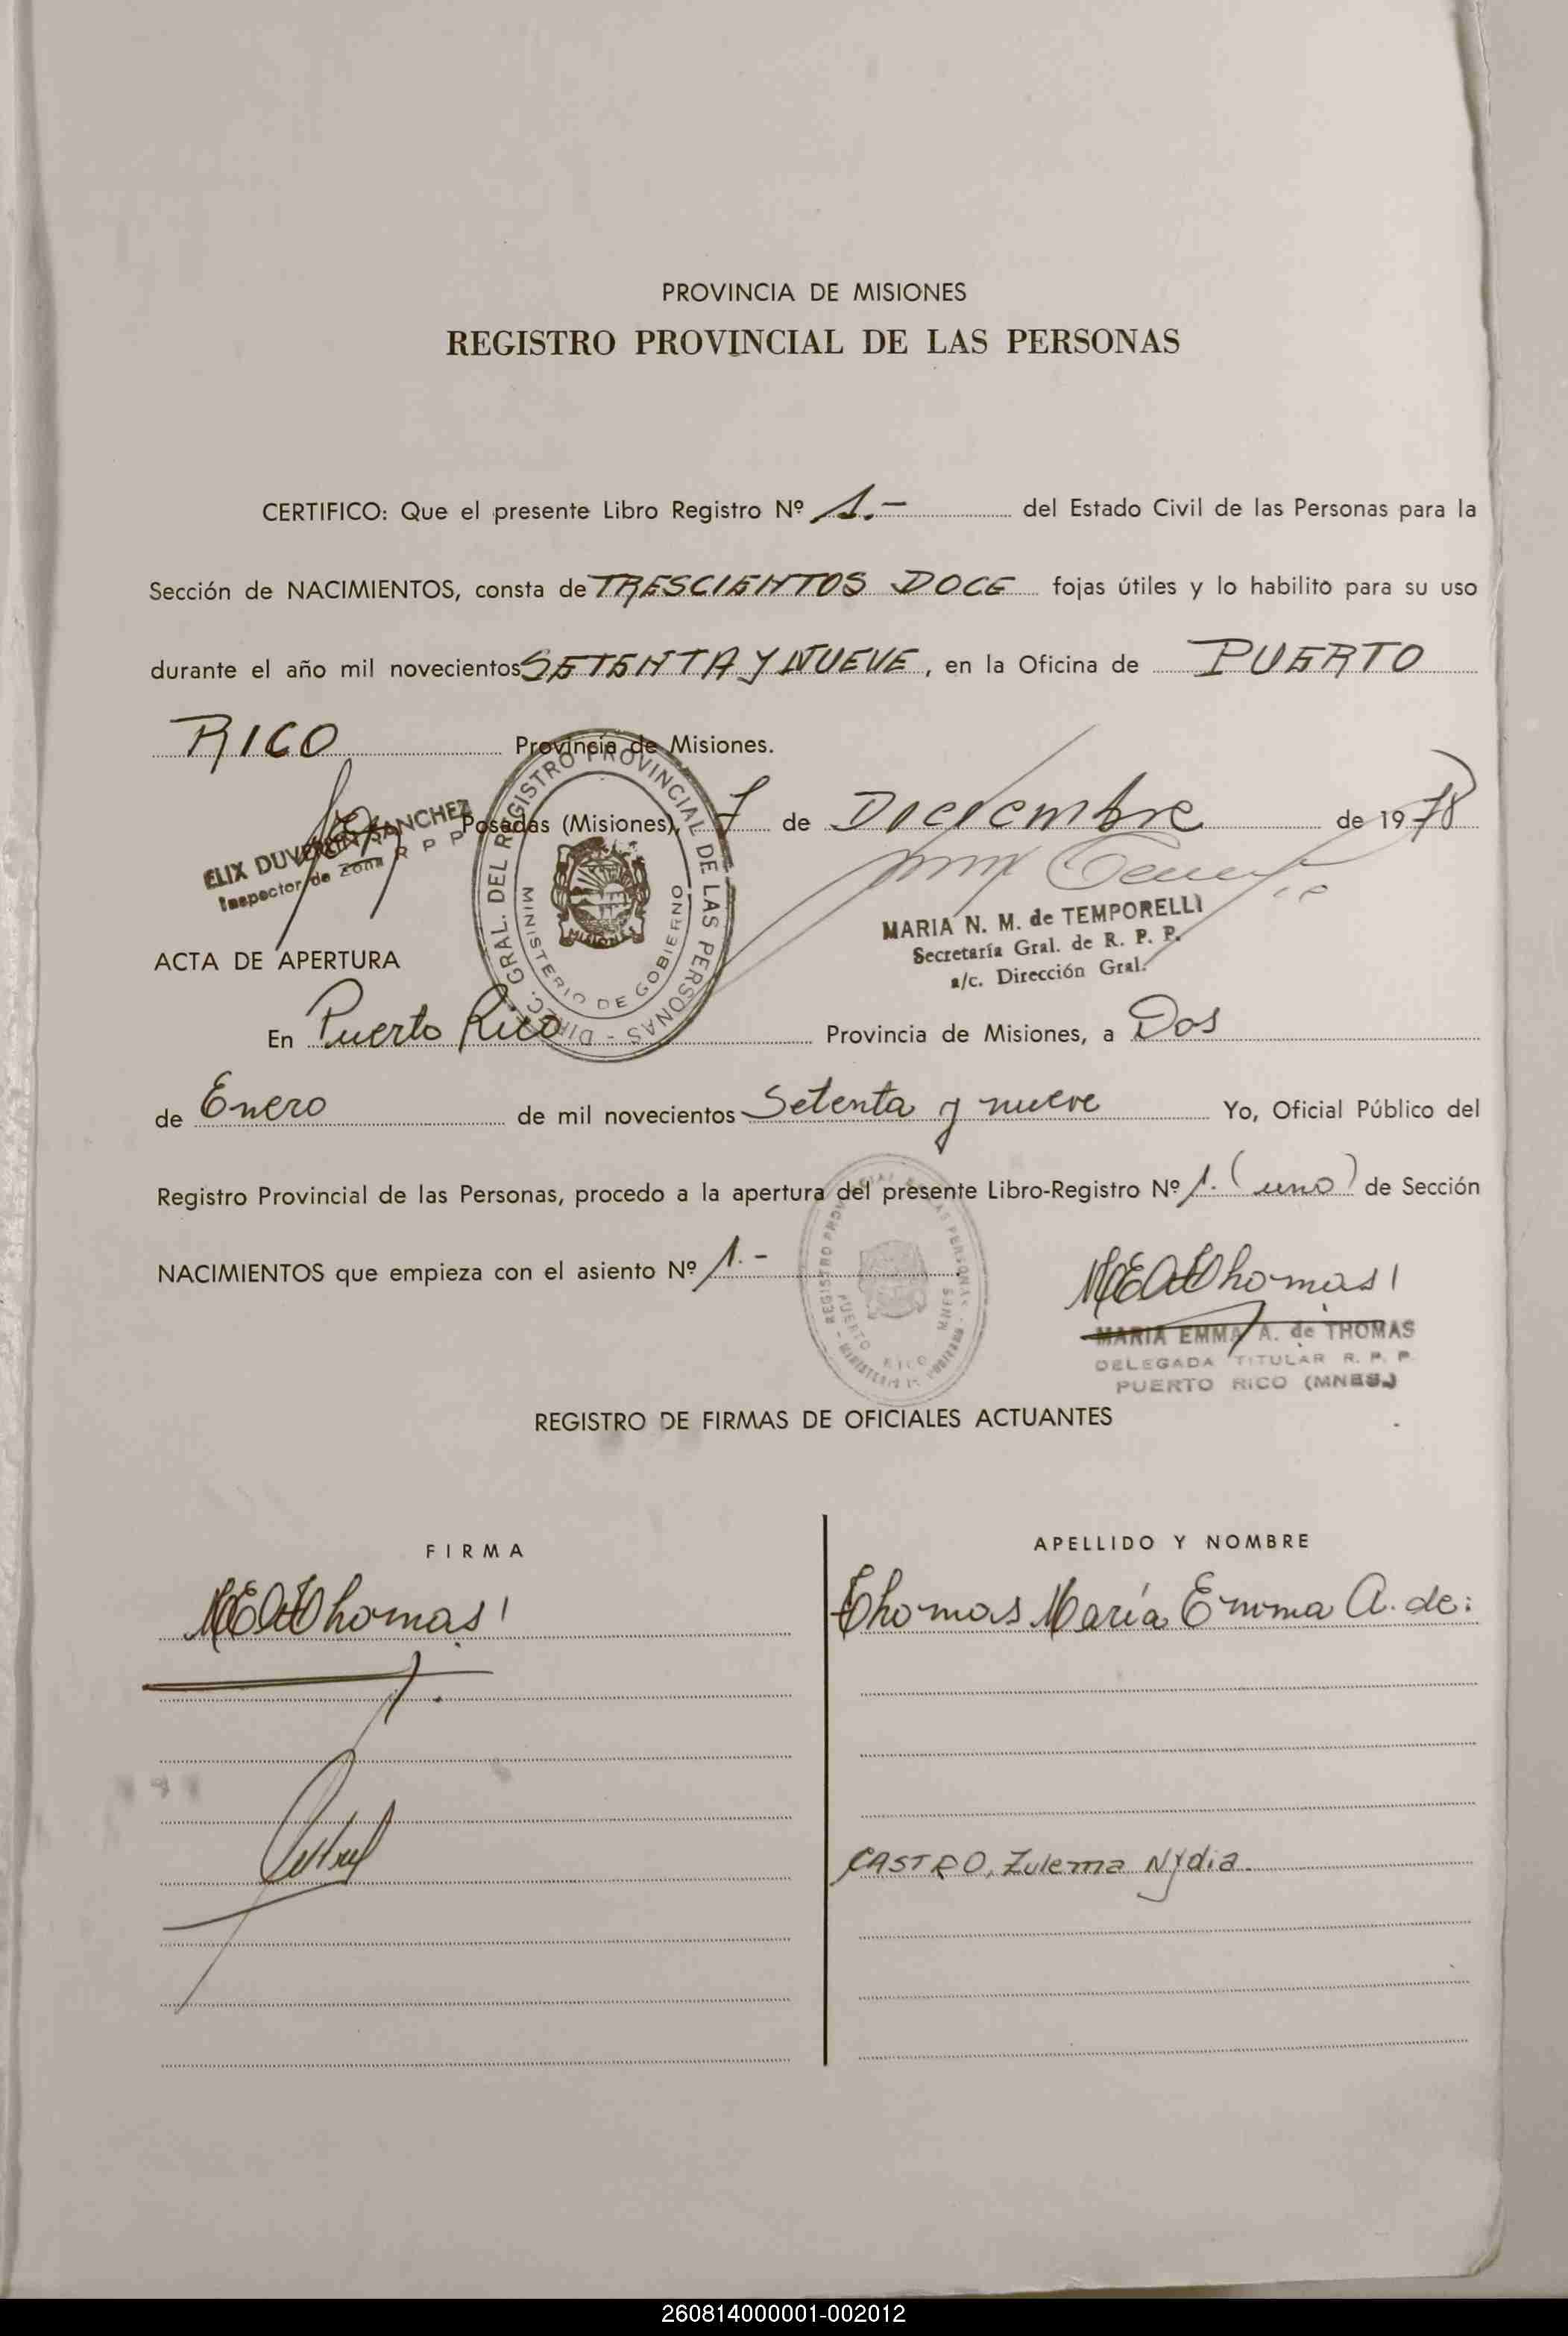 PROVINCIA DE MISIONES
REGISTRO PROVINCIAL DE LAS PERSONAS
CERTIFICO: Que el presente Libro Registro Nº 1.- del Estado Civil de las Personas para la
Sección de NACIMIENTOS, consta de TRESCIENTOS DOCE fojas útiles y lo habilito para su uso
durante el año mil novecientos SETENTA Y NUEVE, en la Oficina de PUERTO
RICO Provincia de Misiones.
Posadas (Misiones), 7 de Diciembre de 1978
ELIX DUVERON SANCHEZ
Inspector de Zona R P P
DIREC. GRAL. DEL REGISTRO PROVINCIAL DE LAS PERSONAS -
MINISTERIO DE GOBIERNO
MISIONES
MARIA N. M. de TEMPORELLI
Secretaría Gral. de R. P. P.
a/c. Dirección Gral.
ACTA DE APERTURA
En Puerto Rico Provincia de Misiones, a Dos
de Enero de mil novecientos Setenta y nueve Yo, Oficial Público del
Registro Provincial de las Personas, procedo a la apertura del presente Libro-Registro Nº 1. (uno) de Sección
NACIMIENTOS que empieza con el asiento Nº 1.-
REGISTRO PERSONAS
PUERTO RICO MNES
MEAdThomas
MARIA EMMA A. de THOMAS
DELEGADA TITULAR R. P. P.
PUERTO RICO (MNES.)
REGISTRO DE FIRMAS DE OFICIALES ACTUANTES
FIRMA
APELLIDO Y NOMBRE
MEAdThomas
Thomas María Emma A. de:
CASTRO, Zulema Nydia.
260814000001-002012